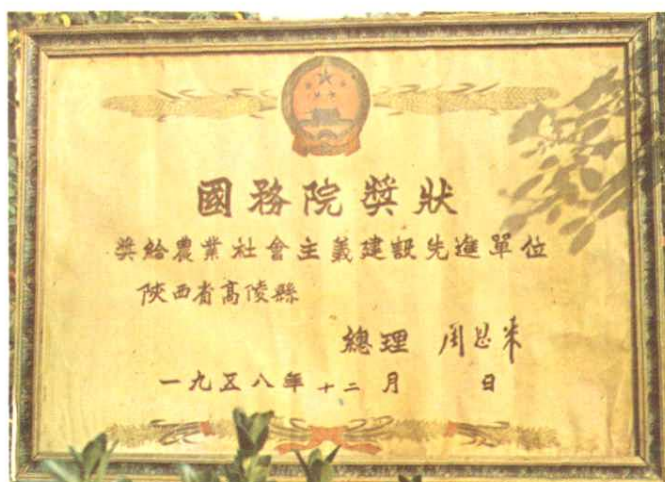 國務院獎狀
獎給農業社會主義建設先進單位
陝西省高陵縣
總理 周恩來
一九五八年十二月 日